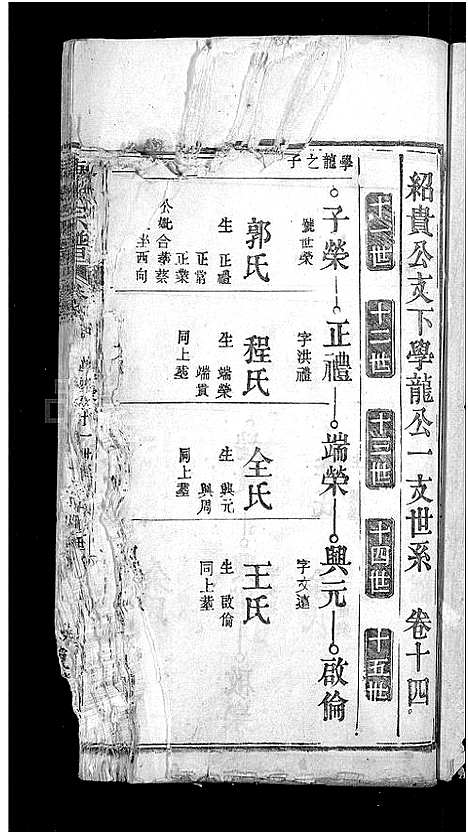 紹貴公支下學龍公一支世系　卷十四
十一世　十二世　十三世　十四世　十五世
學龍之子
子榮　正禮　端榮　興元　啟倫
號世榮
字洪禮
字文遠
郭氏
生　正禮
正常
正業
公妣合葬蔡
坐西向
程氏
生　端榮
端貫
同上墓
全氏
生　興元
興周
同上墓
王氏
生　啟倫
同上墓
宗譜